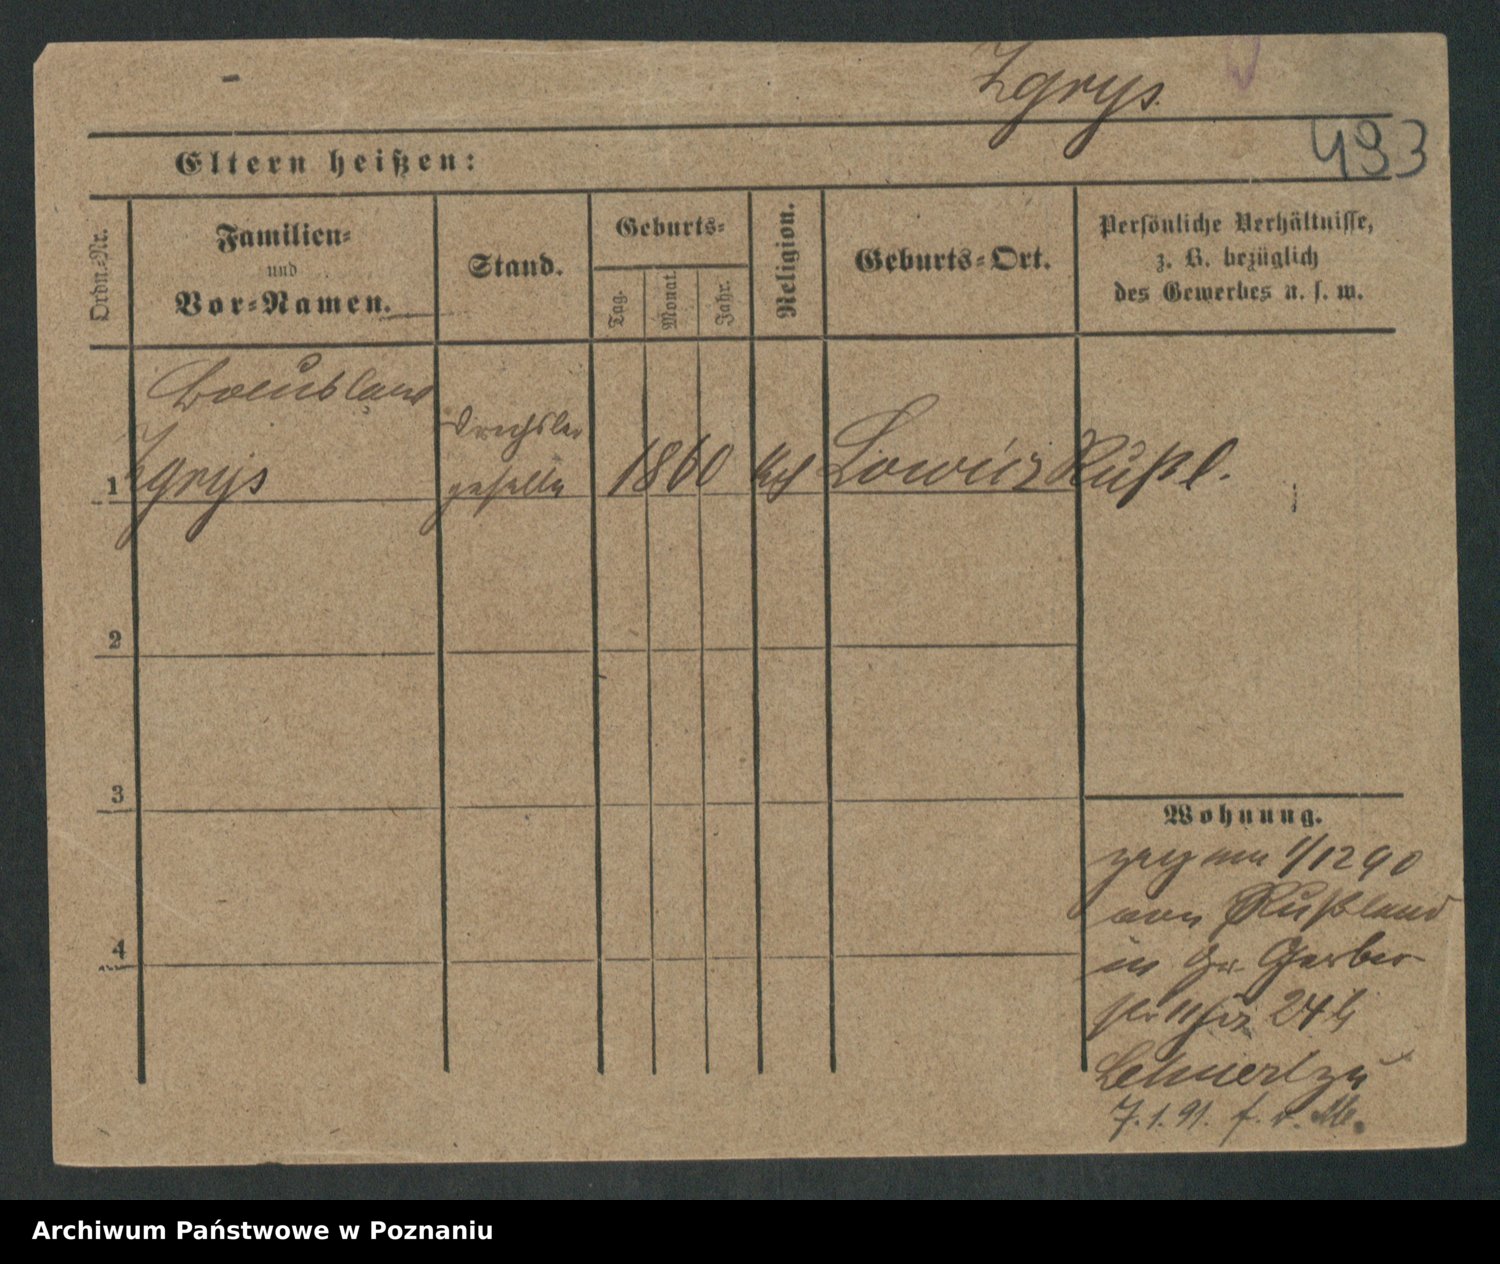 Zgrys.
493
Eltern heißen:
Ordn.-Nr.
Familien-
und
Vor-Namen.
Stand.
Geburts-
Tag.
Monat.
Jahr.
Religion.
Geburts-Ort.
Persönliche Verhältnisse,
z. B. bezüglich
des Gewerbes u. s. w.
Zgrys
Drechsler
geselle
1
1860
kth
Lowicz Rußl.
2
3
4
Wohnung.
1/12 90
von Rußland
in Gr. Gerber
24 b
Lehnert zu
7. 1. 91.
Archiwum Państwowe w Poznaniu